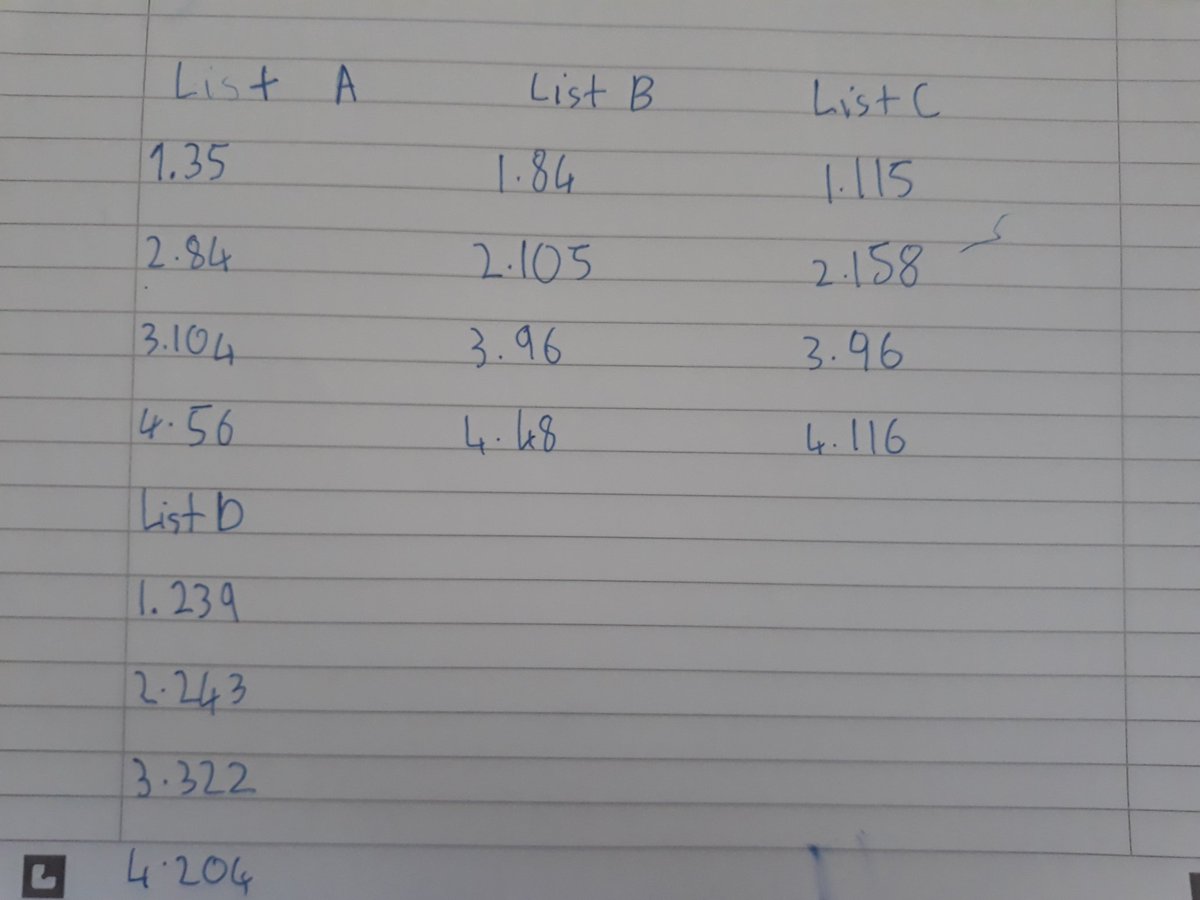 List A List B List C
1.35 1.84 1.115
2.84 2.105 2.158
3.104 3.96 3.96
4.56 4.48 4.116
List D
1.239
2.243
3.322
4.204